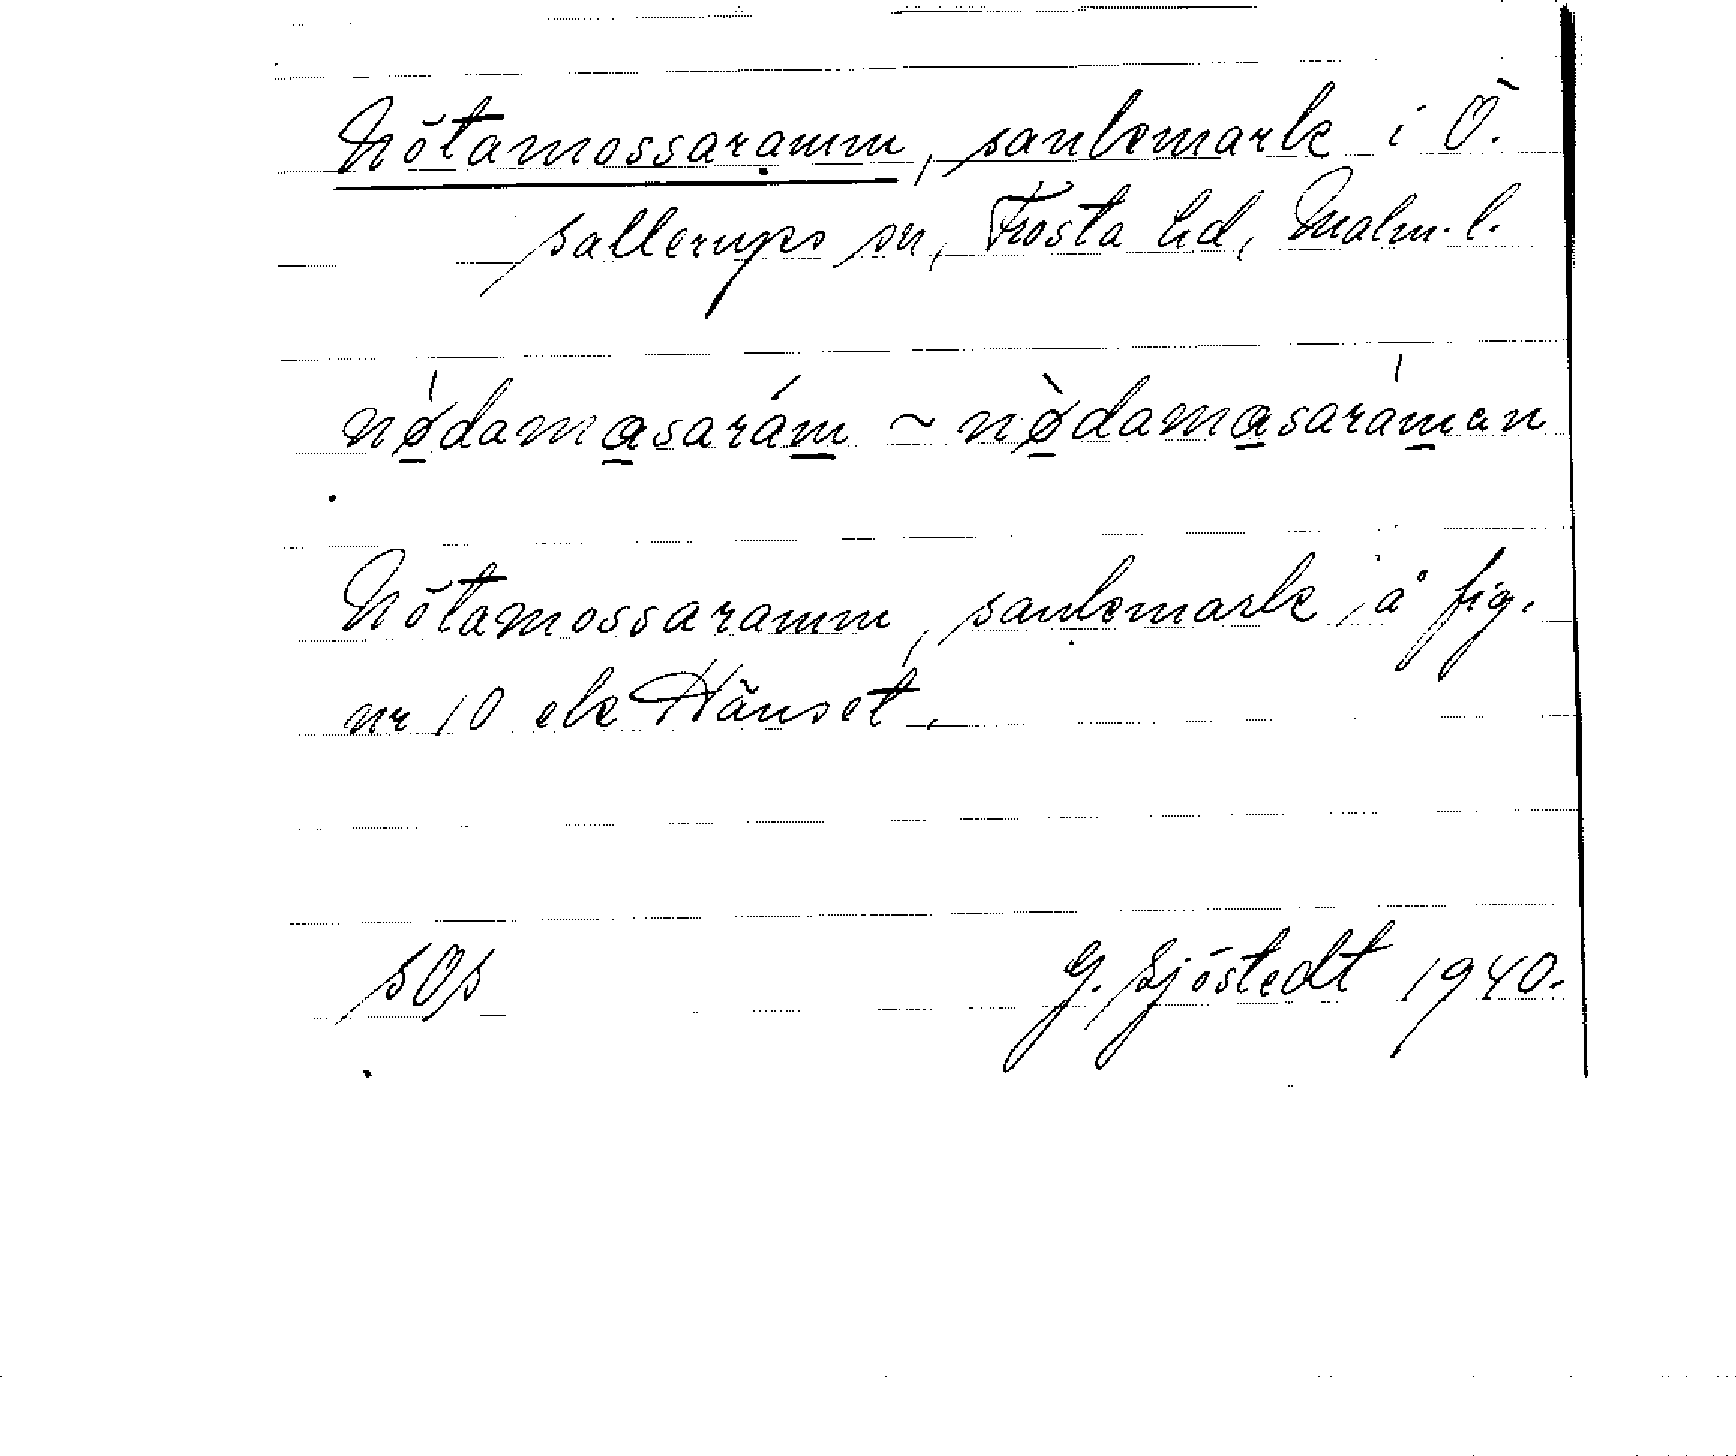 Nötamossaramm, sankmark i Ö.
Sallerups sn, Frosta hd, Malm. l.
nǿdamasarám ~ nø̀damasaráman
Nötamossaramm, sankmark å fig.
nr 10 ek Hänset.
SOS G. Sjöstedt 1940.